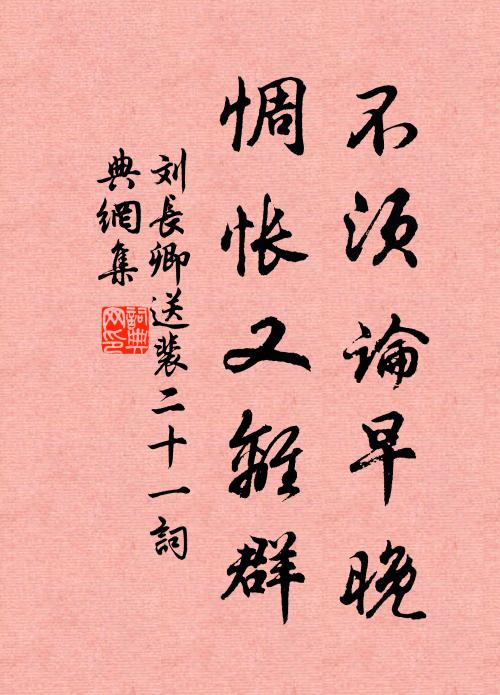 不须論早晚
惆怅又離群
刘長卿送裴二十一詞
典網集
詞典
网印